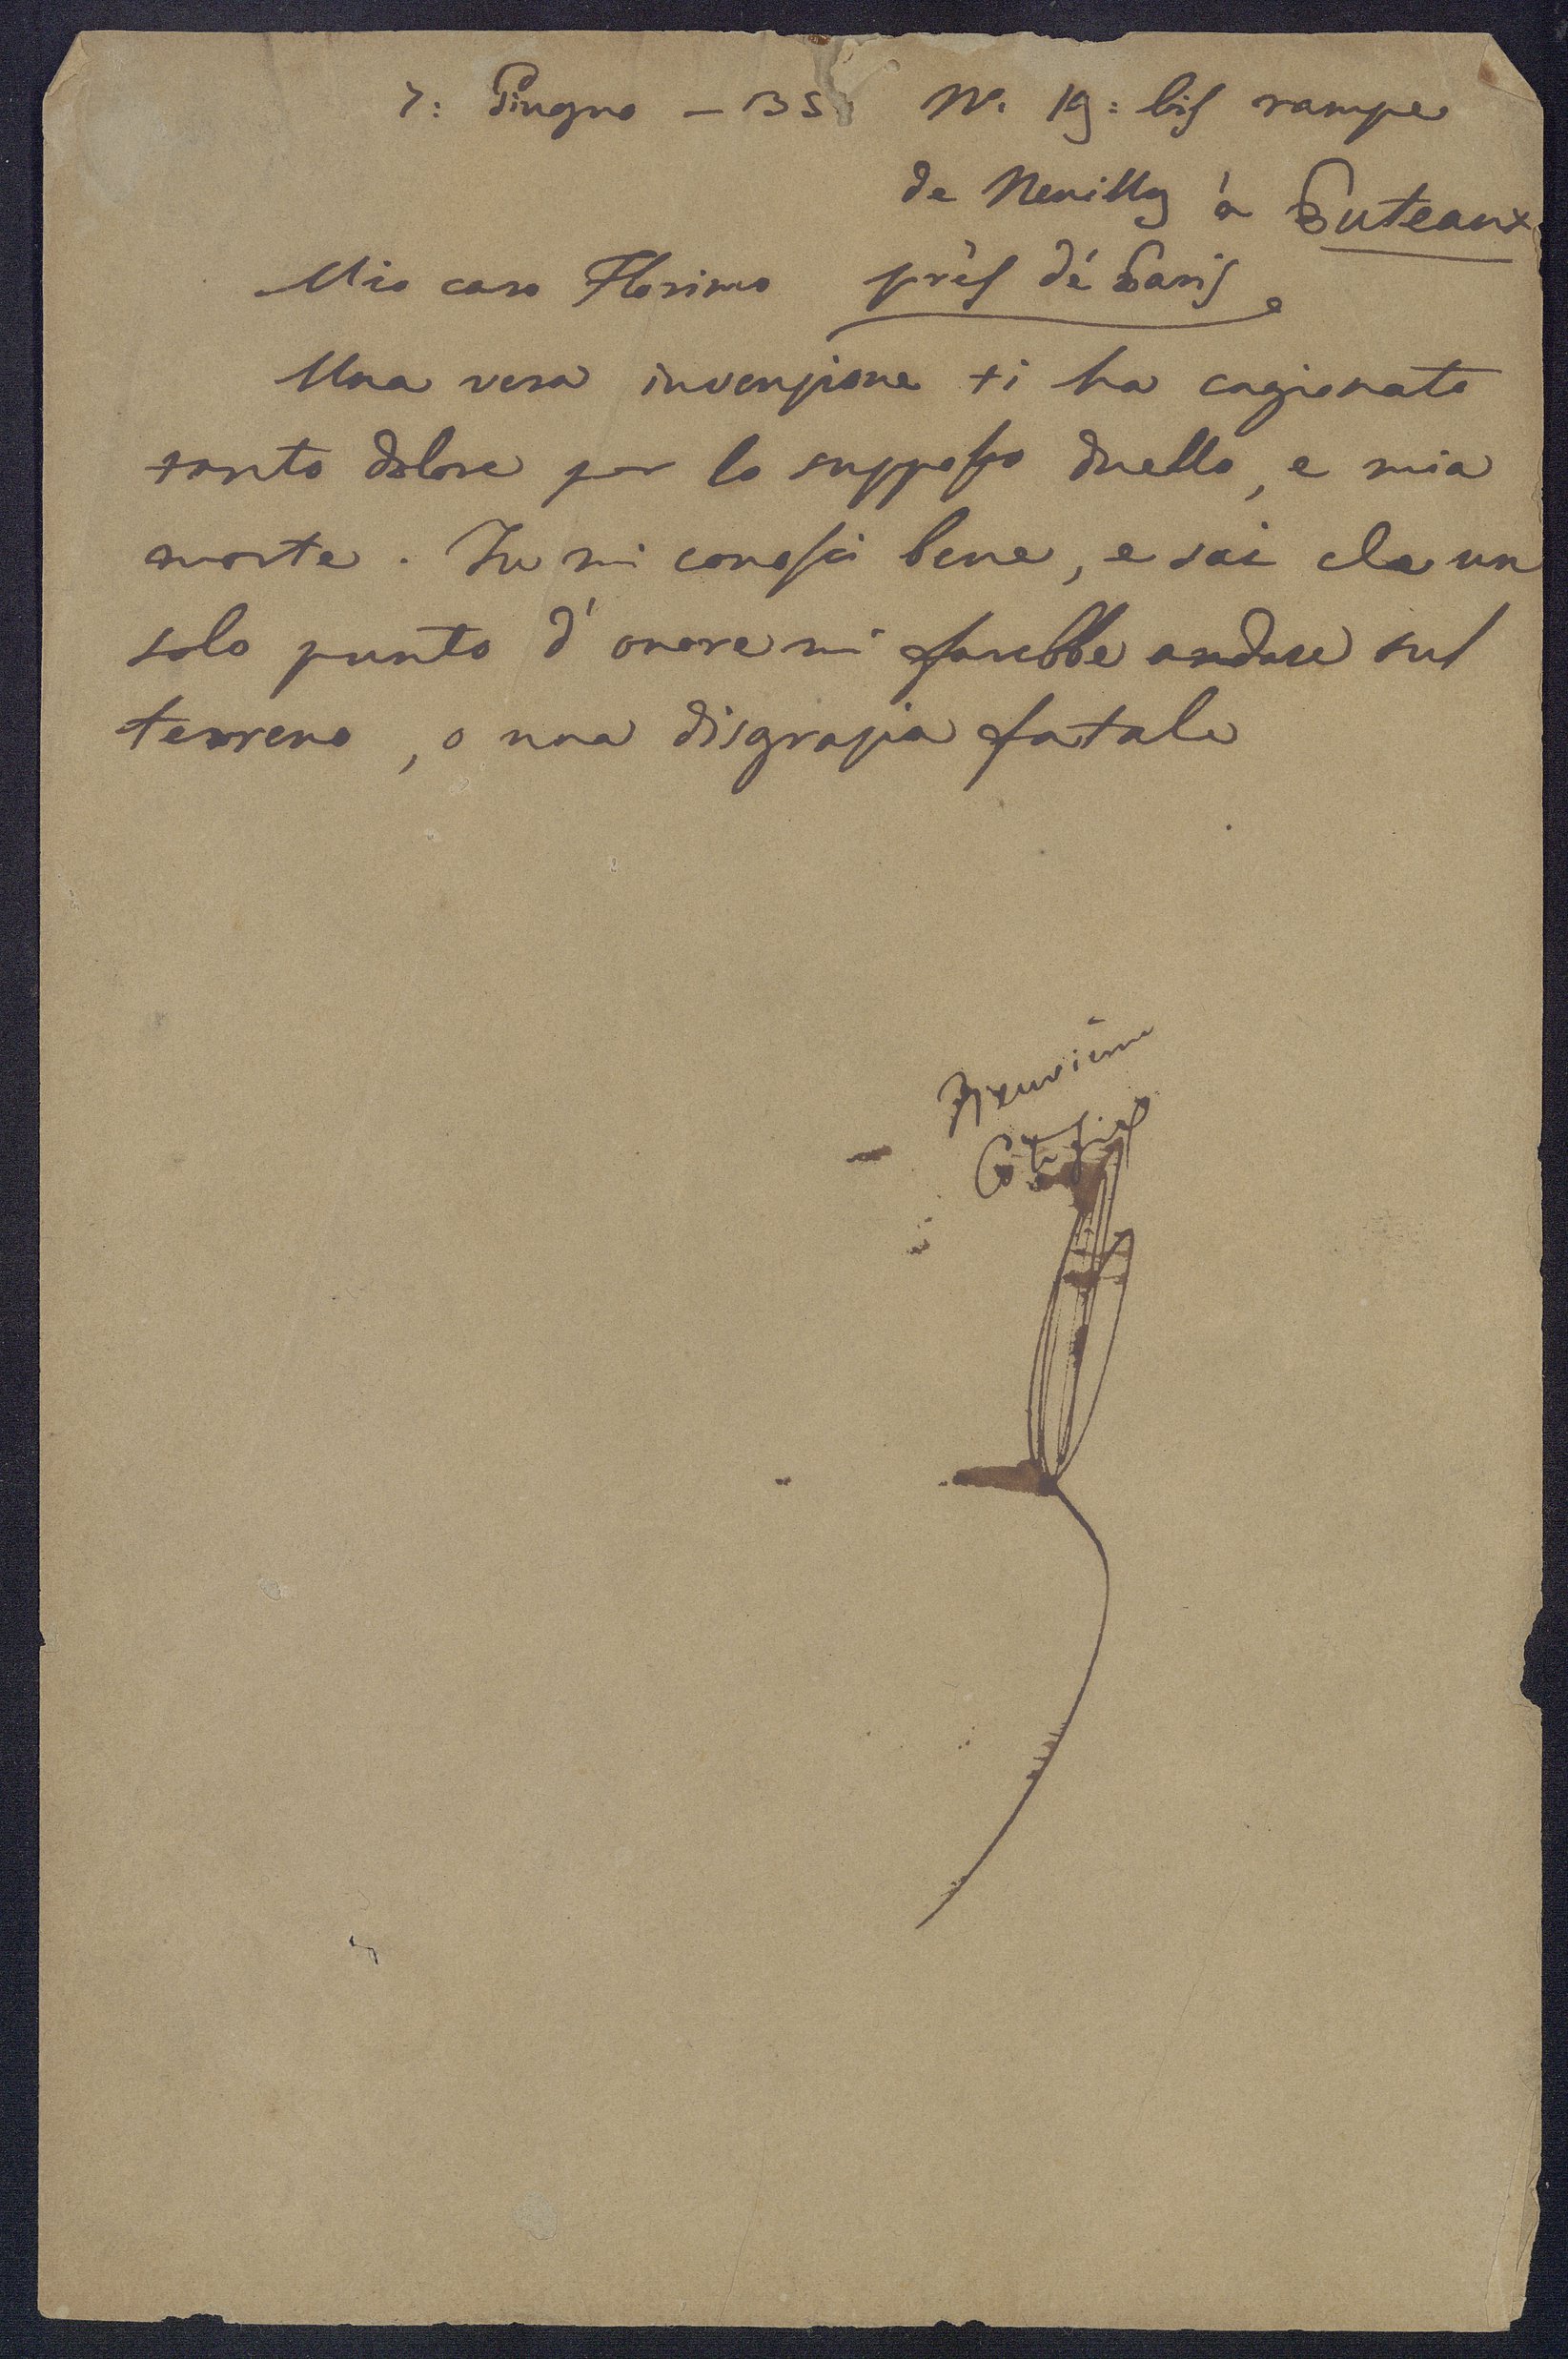 7: Giugno – 35 N. 19: bis rampe
de Neuilly à Puteaux
Mio caro Florimo près dé Paris
Una vera invenzione ti ha cagionato
tanto dolore per lo supposto duello, e mia
morte. Tu mi conosci bene, e sai che un
solo punto d'onore mi farebbe andare sul
terreno, o una disgrazia fatale